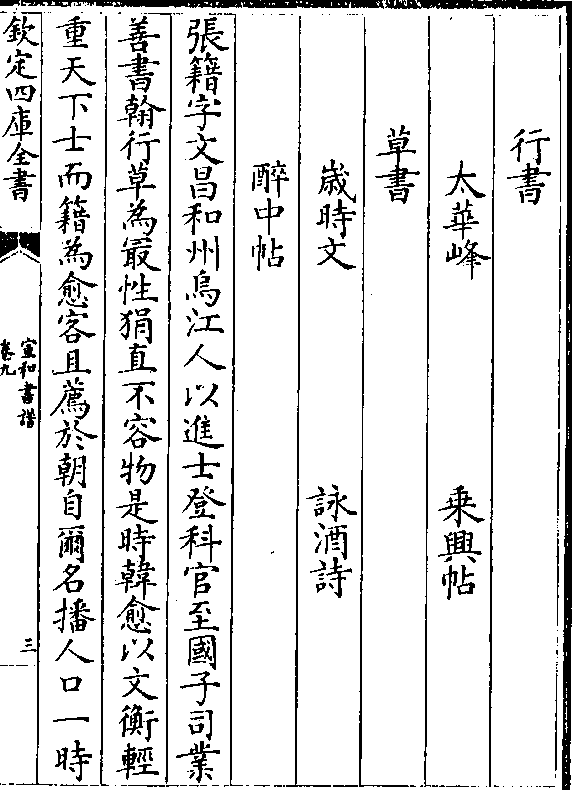 行書
太華峰 乗興帖
草書
歲時文 詠酒詩
醉中帖
張籍字文昌和州烏江人以進士登科官至國子司業
善書翰行草為最性狷直不容物是時韓愈以文衡輕
重天下士而籍為愈客且薦於朝自爾名播人口一時
欽定四庫全書
宣和書譜
卷九
三